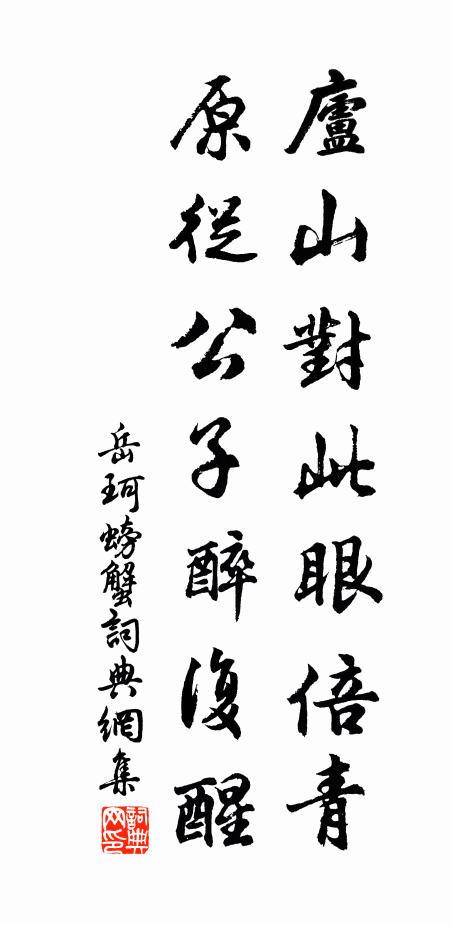 廬山對此眼倍青
原從公子醉復醒
岳珂螃蟹詞典網集
詞典
网印